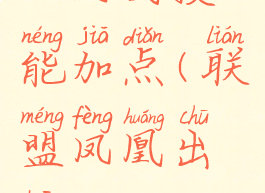 néng jiā diǎn lián
能加点(联
méng fèng huáng chū
盟凤凰出